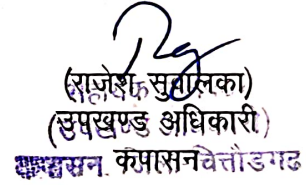 (राजेश सुवालका)
(उपखण्ड अधिकारी)
कपासन चित्तौडगढ